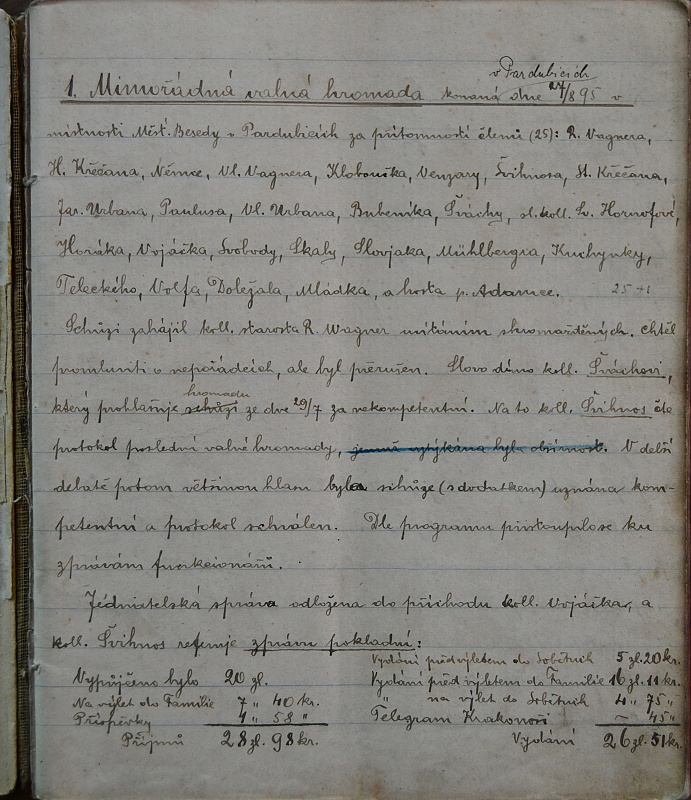 v Pardubicích
1. Mimořádná valná hromada konaná dne 27/8 95 v
místnosti Měšť. Besedy v Pardubicích za přítomnosti členů (25): R. Vagnera,
H. Křečana, Němce, Vl. Vagnera, Kloboučka, Venzary, Švihnosa, St. Křečana,
Jar. Urbana, Paulusa, Vl. Urbana, Bubeníka, Šváchy, sl. koll. Lv. Hornofové,
Horáka, Vojáčka, Svobody, Skály, Slovjaka, Mühlbergra, Kuchynky,
Teleckého, Volfa, Doležala, Mládka, a hosta p. Adamce. 25+1
Schůzi zahájil koll. starosta R. Wagner uvítáním shromážděných. Chtěl
promluviti o nepořádcích, ale byl přerušen. Slovo dáno koll. Šváchovi,
hromadu
který prohlašuje schůzi ze dne 29/7 za nekompetentní. Na to koll. Švihnos čte
protokol poslední valné hromady, jemuž vytýkána byla obšírnost. V delší
debatě potom většinou hlasů byla schůze (s dodatkem) uznána kom-
petentní a protokol schválen. Dle programu přistoupilose ku
zprávám funkcionářů.
Jednatelská správa odložena do příchodu koll. Vojáčka, a
koll. Švihnos referuje zprávu pokladní:
Vydání před výletem do Sobětuch 5 zl. 20 kr.
Vypůjčeno bylo 20 zl. Vydání před výletem do Familie 16 zl. 11 kr.
Na výlet do Familie 7 „ 40 kr. „ na výlet do Sobětuch 4 „ 75 „
Příspěvky 4 „ 58 „ Telegram Krakonoši — 45 „
Příjmů 28 zl. 98 kr. Vydání 26 zl. 51 kr.